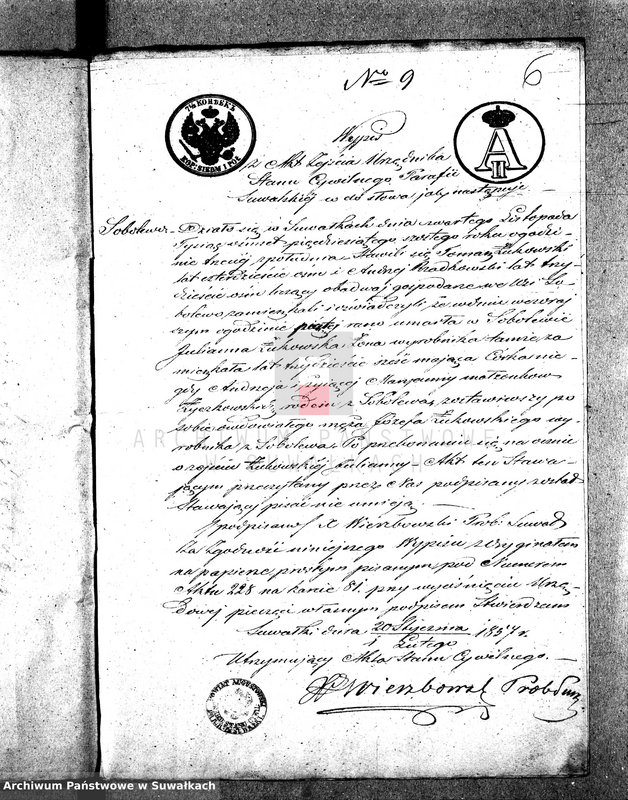 Nro 9
6
7½ КОПѢЕКЪ
KOP. SIEDM I PÓŁ
A II
Wypis
z Akt Zejścia Urzędnika
Stanu Cywilnego Parafii
Suwalskiej w do słowa jak następuje
Sobolewo. Działo się w Suwałkach dnia czwartego Listopada
tysiąc ośmset pięćdziesiątego szóstego roku o godzi-
nie trzeciej z południa Stawili się Tomasz Żukowski
lat czterdzieście ośm i Andrzej lat trzy-
dzieście ośm liczący obadwaj gospodarze we Wsi So-
bolewo zamieszkali i oświadczyli że w dniu wczoraj
szym o godzinie piątej rano umarła w Sobolewie
Julianna Żukowska Żona wyrobnika tamże za
mieszkała lat trzydzieście sześć mająca Córka nie-
gdy Andrzeja i żyjącej Maryanny małżonków
rodem z Sobolewa, zostawiwszy po
sobie owdowiałego męża Józefa Żukowskiego wy-
robnika z Sobolewa. Po przekonaniu się naocznie
o zejściu Żukowskiej Julianny Akt ten Stawa-
jącym przeczytany przez Nas podpisany został
Stawający pisać nie umieją.
/podpisano/ X Wierzbowski Prob: Suwal
Za zgodność niniejszego Wypisu z Oryginałem
na papierze prostym pisanym pod Numerem
Aktu 228 na karcie 81. przy wyciśnięciu Urzę-
dowej pieczęci własnym podpisem Stwierdzam
Suwałki dnia 20 Stycznia 1857 r.
1 Lutego
Utrzymujący Akta Stanu Cywilnego.
X Wierzbowski Prob Suw
ARCHIWUM PAŃSTWOWE
W SUWAŁKACH
Archiwum Państwowe w Suwałkach